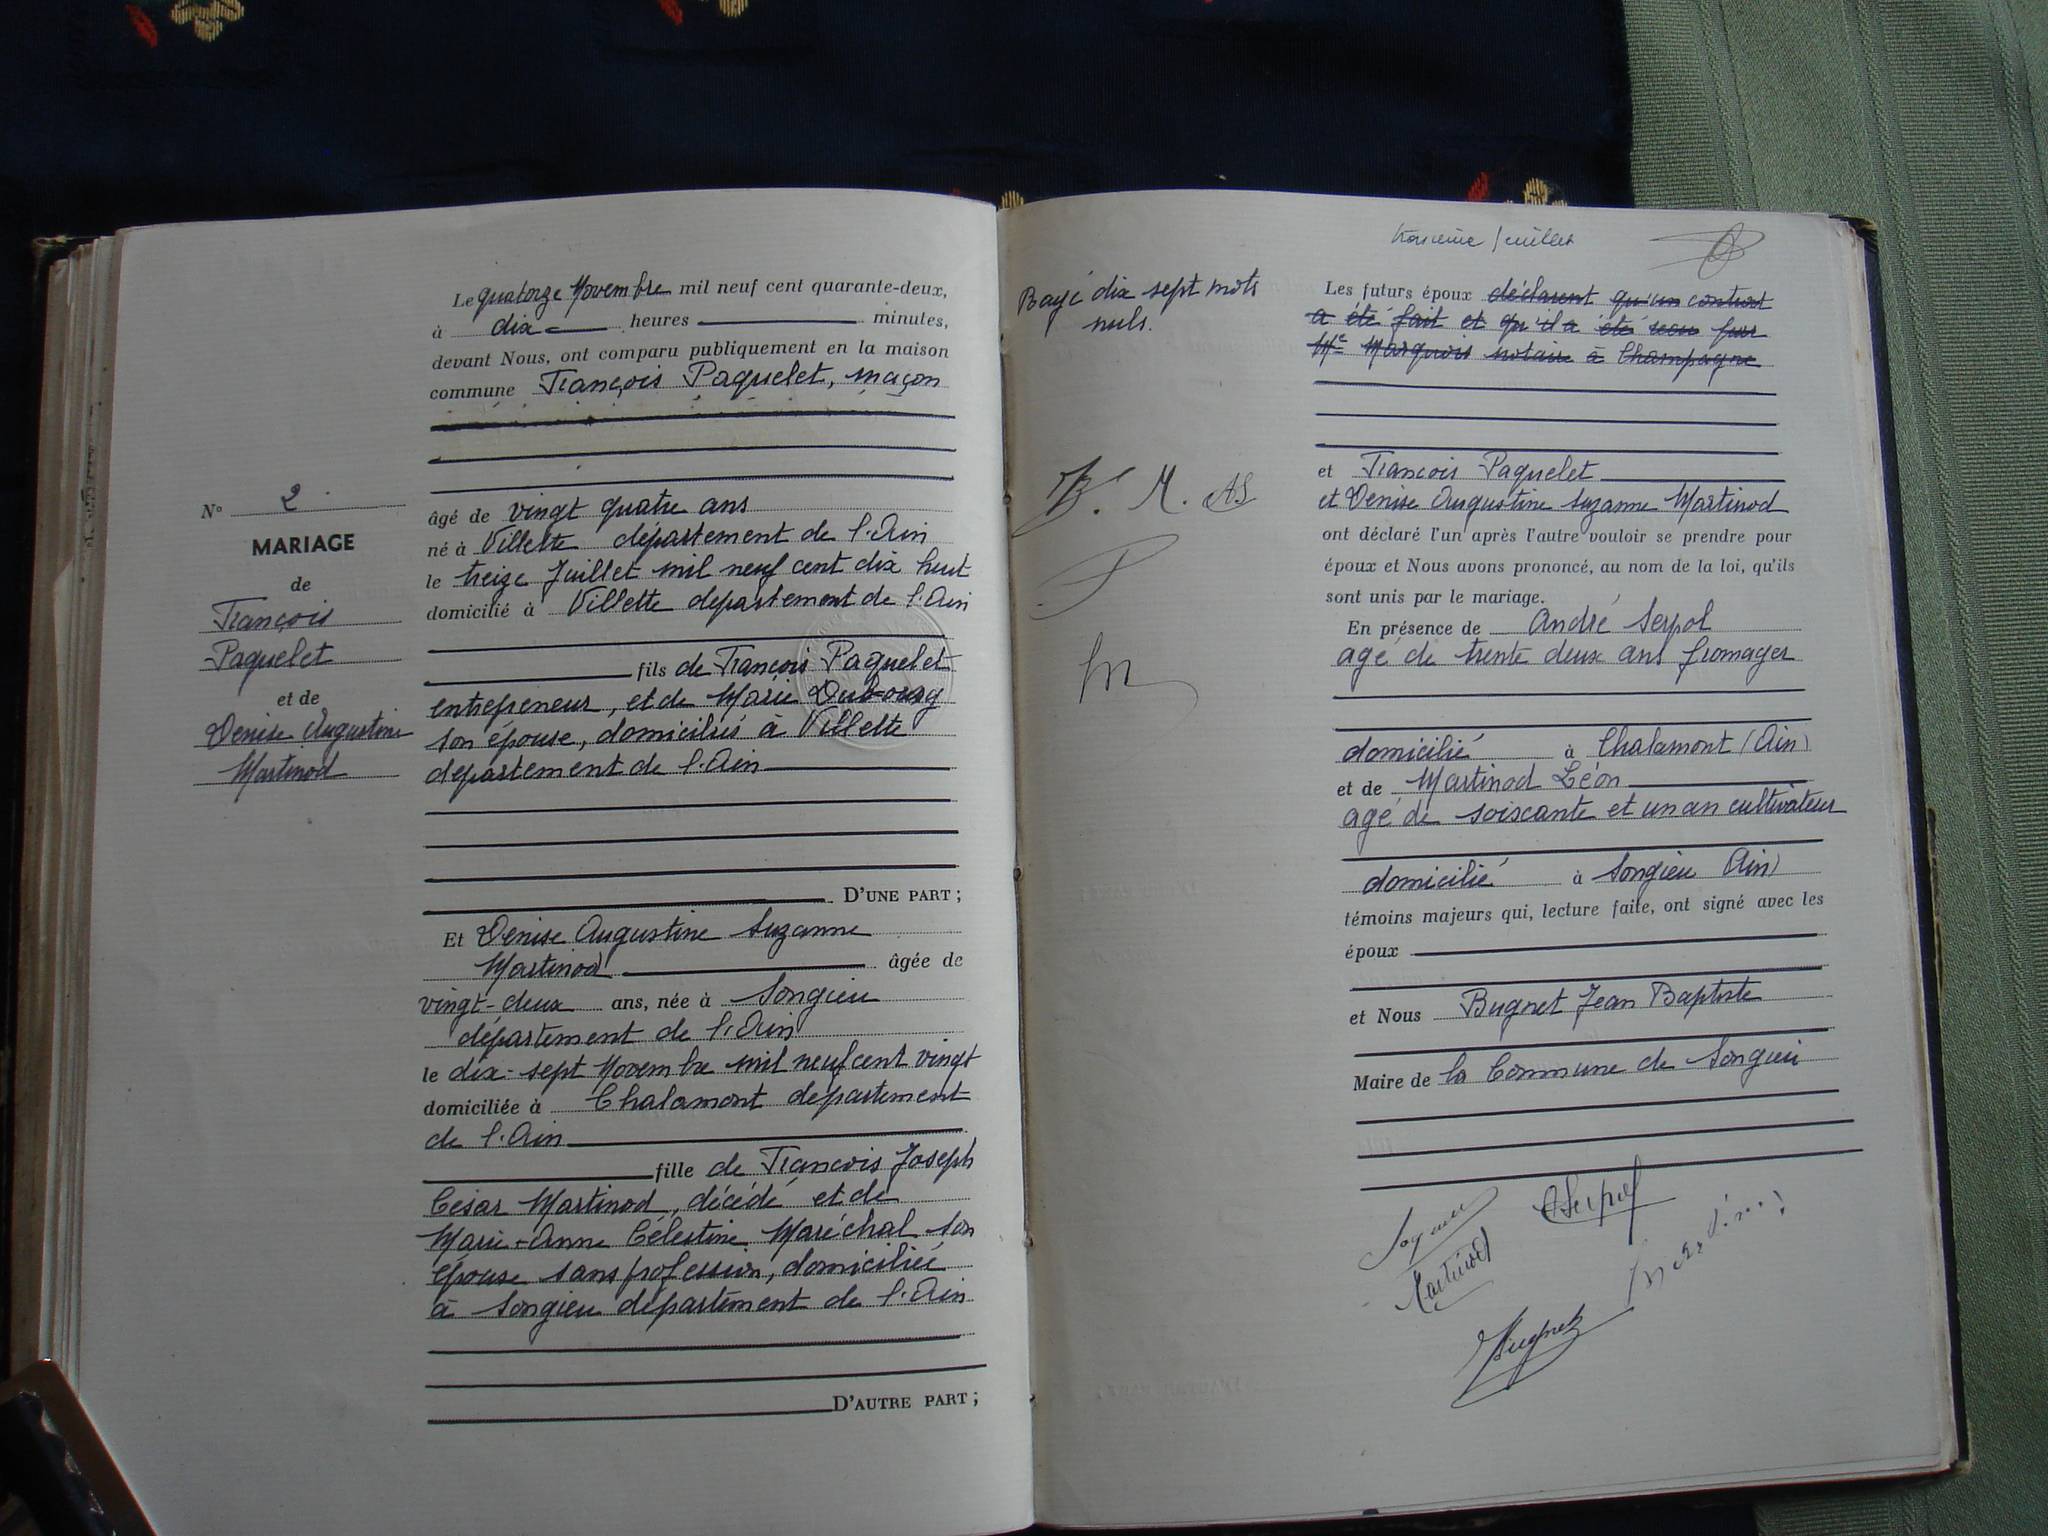 Le quatorze Novembre mil neuf cent quarante-deux,
à dix heures minutes,
devant Nous, ont comparu publiquement en la maison
commune François Paquelet, maçon
N° 2
MARIAGE
de
François
Paquelet
et de
Denise Augustine
Martinod
âgé de vingt quatre ans
né à Villette département de l'Ain
le treize Juillet mil neuf cent dix huit
domicilié à Villette département de l'Ain
fils de François Paquelet
entrepreneur, et de Marie Dubourg
son épouse, domiciliés à Villette
département de l'Ain
D'UNE PART ;
Et Denise Augustine Suzanne
Martinod âgée de
vingt-deux ans, née à Songieu
département de l'Ain
le dix-sept Novembre mil neuf cent vingt
domiciliée à Chalamont département
de l'Ain
fille de François Joseph
César Martinod, décédé et de
Marie-Anne Célestine Maréchal son
épouse sans profession, domiciliée
à Songieu département de l'Ain
D'AUTRE PART ;
troisième feuillet
Rayé dix sept mots
nuls.
Les futurs époux déclarent qu'un contrat
a été fait et qu'il a été reçu par
Me Marquis notaire à Champagne
B. M. AS
P
M
et François Paquelet
et Denise Augustine Suzanne Martinod
ont déclaré l'un après l'autre vouloir se prendre pour
époux et Nous avons prononcé, au nom de la loi, qu'ils
sont unis par le mariage.
En présence de André Serpol
agé de trente deux ans fromager
domicilié à Chalamont (Ain)
et de Martinod Léon
agé de soiscante et un an cultivateur
domicilié à Songieu Ain)
témoins majeurs qui, lecture faite, ont signé avec les
époux
et Nous Bugnet Jean Baptiste
Maire de la Commune de Songieu
ASerpol
Martinod
Bugnet